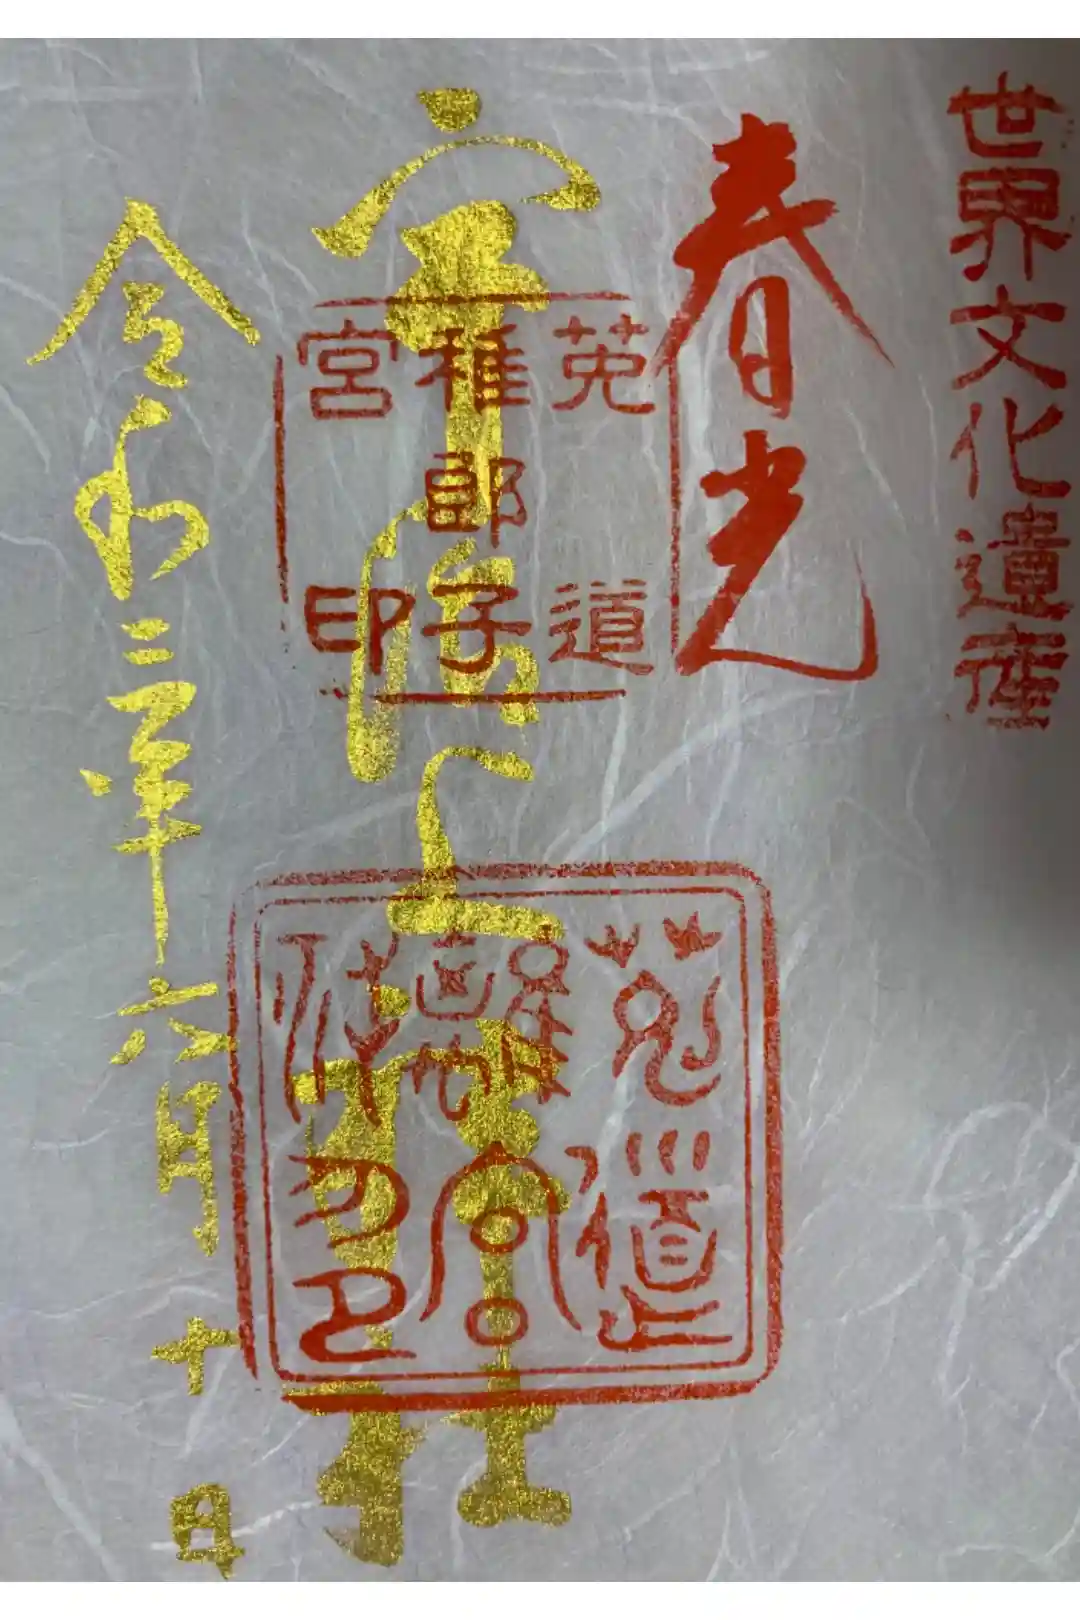 世界文化遺産
春光
宇治上神社
菟道
稚郎子
宮印
菟道
稚郎宮
令和三年六月十日